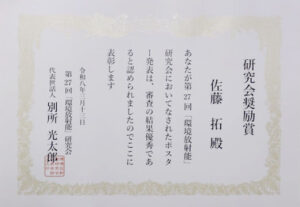 研究会奨励賞
佐藤 拓 殿
あなたが第27回「環境放射能」
研究会においてなされたポスタ
ー発表は、審査の結果優秀であ
ると認められましたのでここに
表彰します
令和八年三月十二日
第27回「環境放射能」研究会
代表世話人 別所 光太郎